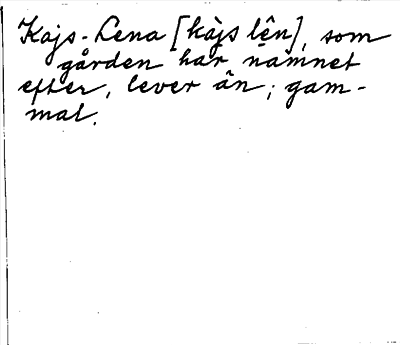 Kajs-Lena [kàjs lên], som
gården har namnet
efter, lever än; gam-
mal.